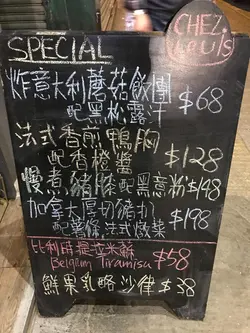 CHEZ
Louis
SPECIAL
炸意大利蘑菇飯團
配黑松露汁 $68
法式香煎鴨胸
配香橙醬 $128
慢煮豬膝配黑意粉 $148
加拿大厚切豬扒
配薯條 法式燉菜 $198
比利時提拉米蘇
Belgium Tiramisu $58
鮮果乳酪沙律 $38